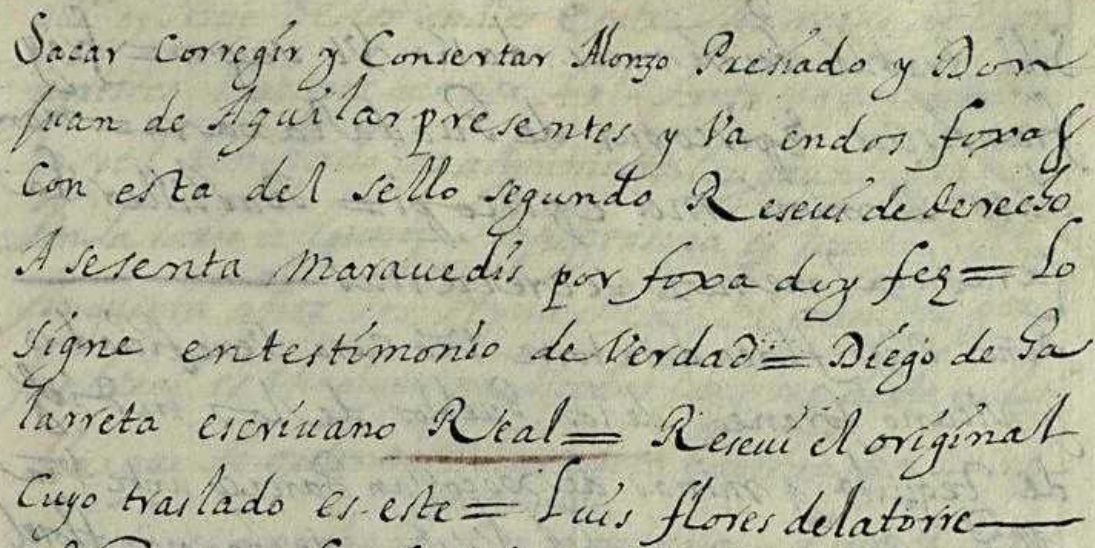 Sacar Corregir y Consertar Alonzo Preñado y Don
Juan de Aguilar presentes y Va en dos foxas
Con esta del sello segundo Reseui de derecho
A sesenta marauedis por foxa doy feę = Lo
signe en testimonio de Verdad = Diego de Ga
larreta escriuano Real = Reseui el original
Cuyo traslado es este = Luis flores de la torre